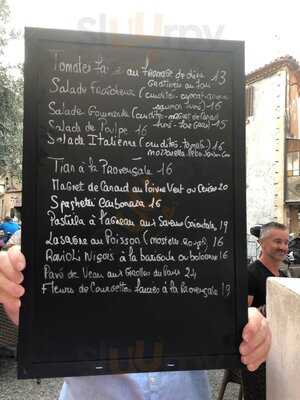 Tomates au fromage de chèvre 13
gratinées au four
Salade Fraîcheur (crudités
saumon fumé) 16
Salade Gourmande (crudités - magret de canard
fumé - foie gras) 15
Salade de Poulpe 16
Salade Italienne (crudités - tomate
mozzarella
16
Tian à la Provençale 16
Magret de Canard au Poivre Vert ou Cèpes 20
Spaghetti Carbonara 16
Pastilla à l'agneau aux Saveurs Orientales 19
Lasagne au Poisson (16
Ravioli Niçois à la barigoule ou bolognaise 16
Pavé de Veau aux Girolles du Pays 24
Fleurs de Courgettes farcies à la Provençale 19